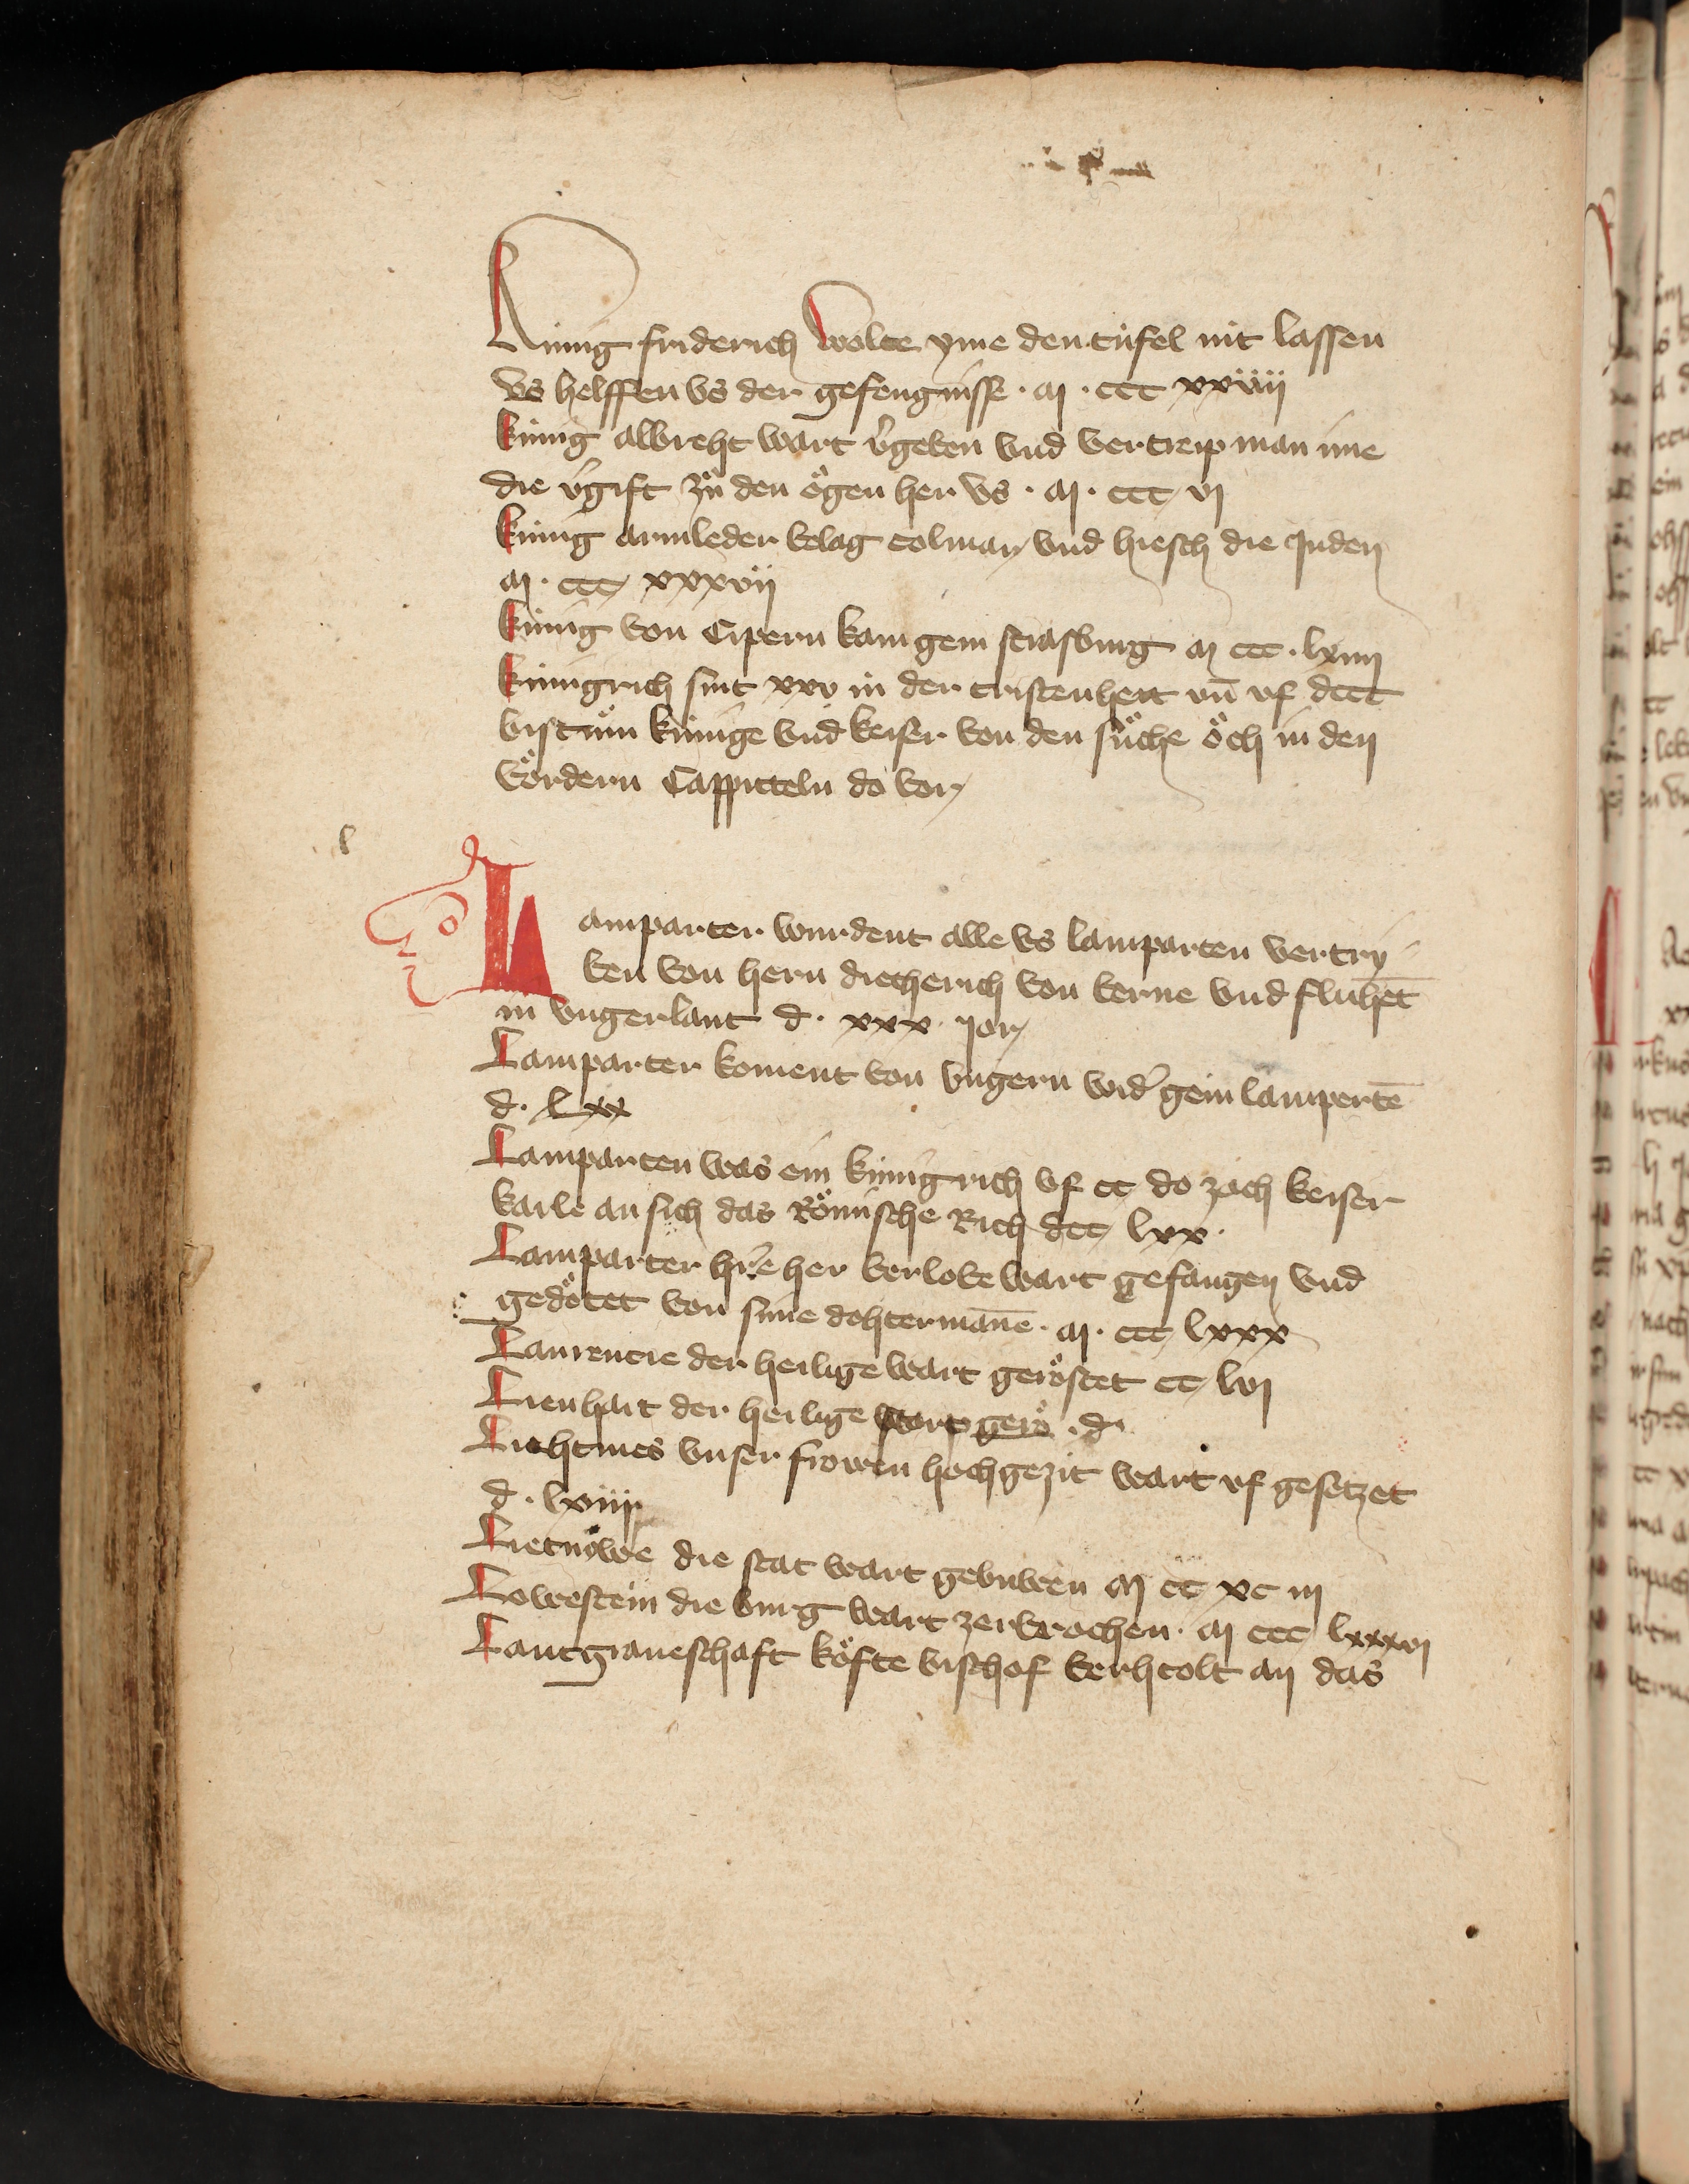 Kunig friderich wolte yme den tufel nit lassen
vs helffen vs der gefengnisse · M · ccc xxviij
kunig albreht wart v᷑geben vnd vertreip man ime
die v᷑gift zů den ögen her vs · M · ccc vj
kunig armleder belag colmar vnd hiesch die Juden
M · ccc xxxvij
kunig von Cipern kam gein strasburg M ccc · lxiiij
kunigrich sint xxv in der cristenheit vn̄ vf dccc
bistům kunige vnd keiser von den sůche öch in den
vördern Cappitteln do vor
l
Lamparter wurdent alle vs lamparten vertri
ben von hern dietherich von berne vnd fluhēt
in vngerlant d · xxx · jor
Lamparter koment von vngern wid᷑ gein lampertē
d · lxx
Lamparten was ein kunigrich vf cc do zoch keiser
karle an sich das Römische Rich dcc lxx ·
Lamparter hr̄e her berlobe wart gefangen vnd
gedötet von sime dohtermāne · M · ccc lxxx
Laurencie der heilige wart geröstet cc lvj
Lienhart der heilige wart gerö · d ·
Liehtmes vnser frowen hochgezit wart vf gesetzet
d · lxiiij
Lietnowe die stat wart gebuwen M cc xc iij
Lowestein die burg wart zerbrochen · M ccc lxxxvj
Lantgraueschaft köfte bischof berhtolt an das